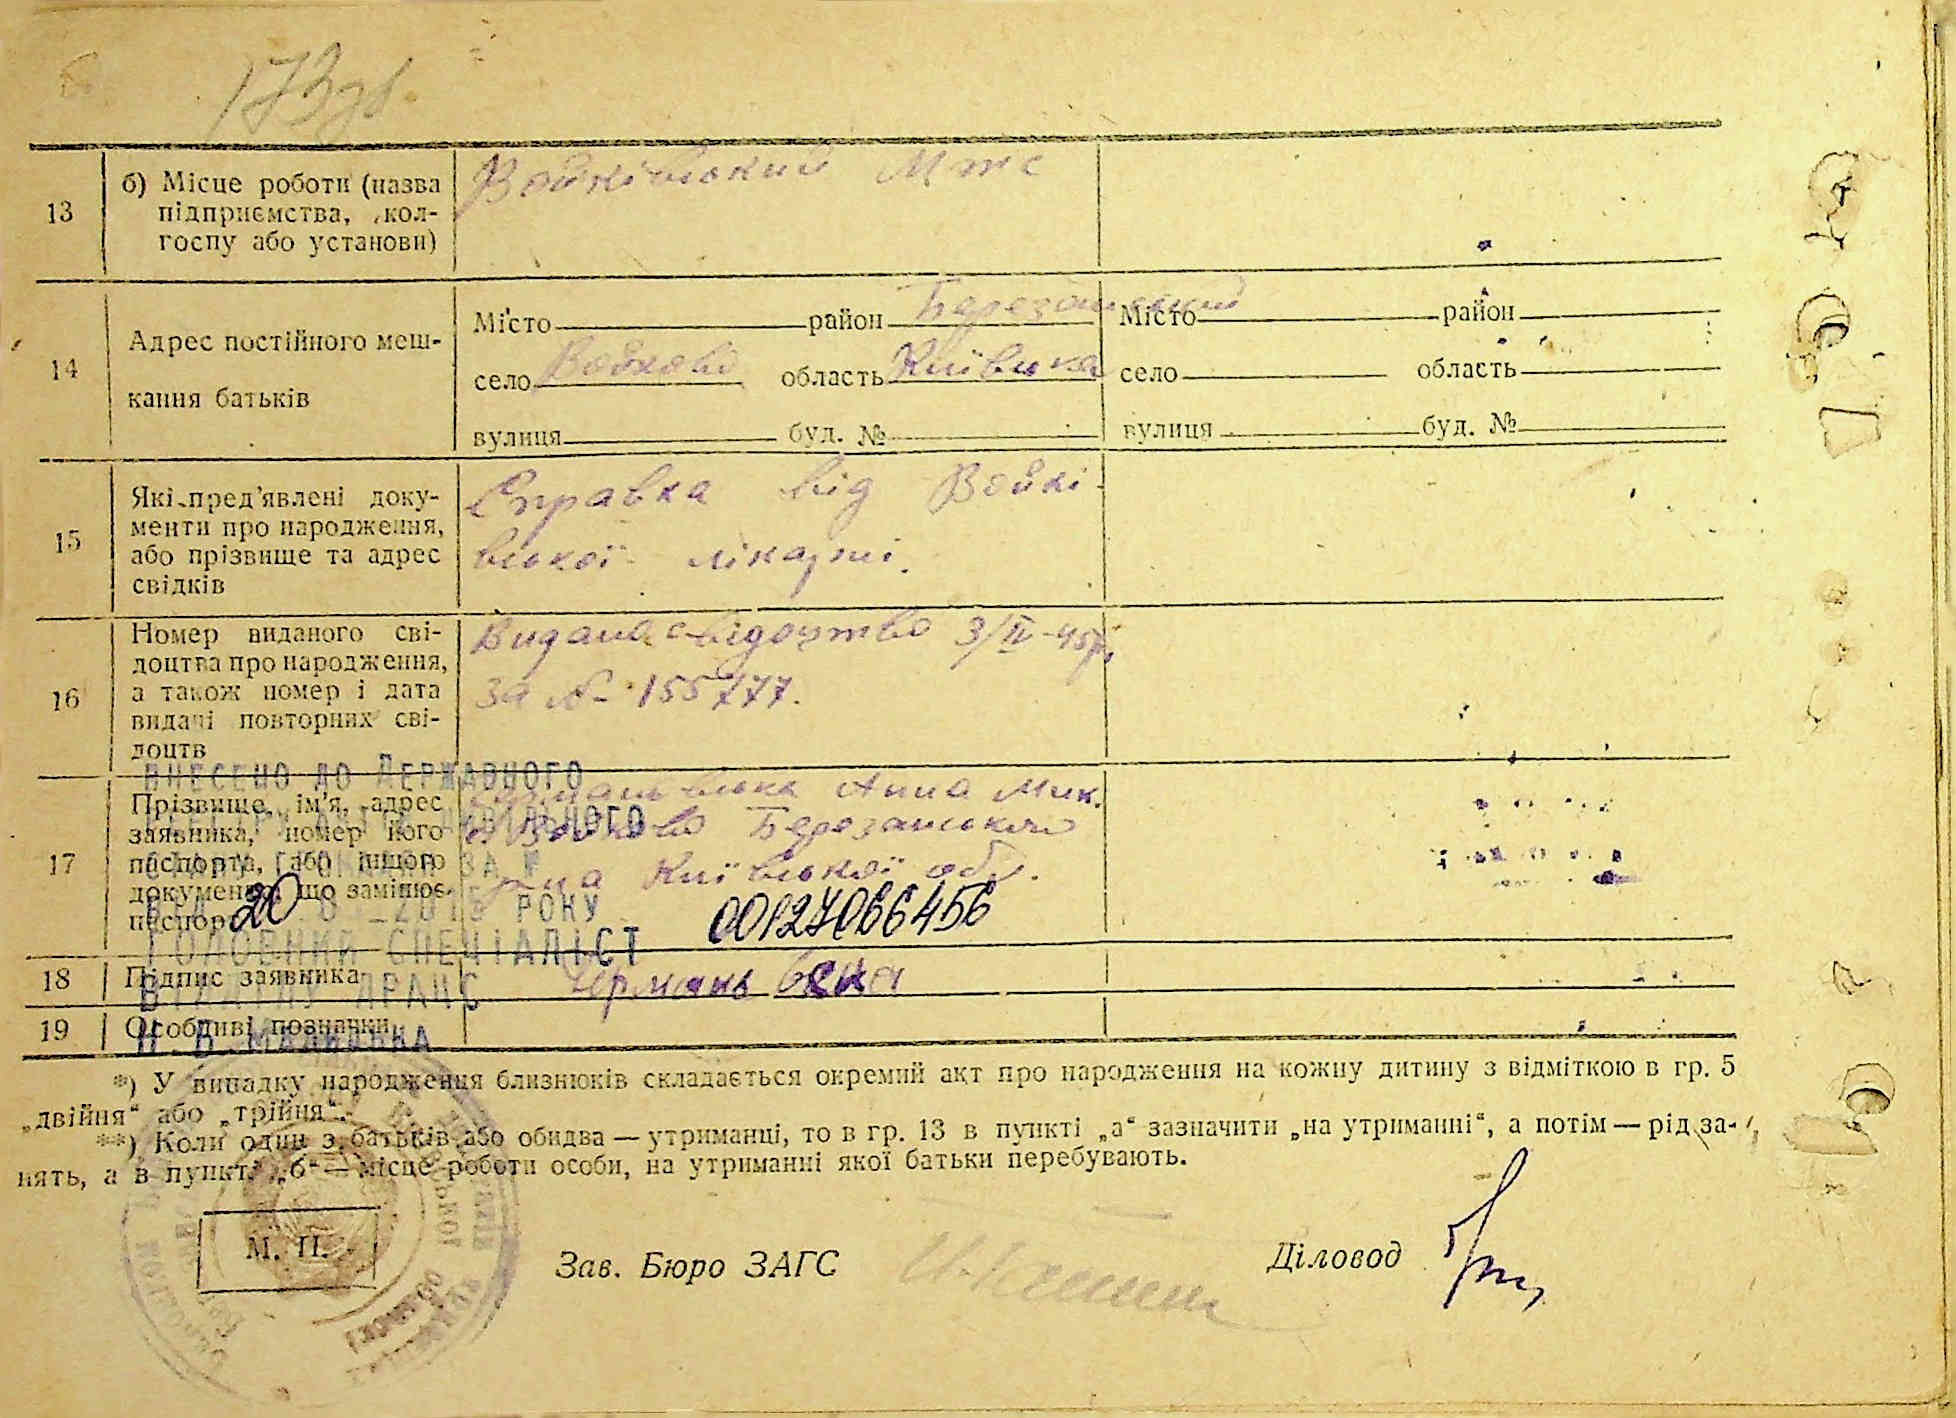 173зв.
13 б) Місце роботи (назва підприємства, кол-
госпу або установи)
Войківський Мтс
14 Адрес постійного меш-
кання батьків
Місто район Березанський
село Войково область Київська
вулиця буд. №
Місто район
село область
вулиця буд. №
15 Які пред'явлені доку-
менти про народження,
або прізвище та адрес
свідків
Справка від Войкі-
вської лікарні.
16 Номер виданого сві-
доцтва про народження,
а також номер і дата
видачі повторних сві-
доцтв
Видана свідоцтво 3/II-45р.
за № 155777.
ВНЕСЕНО ДО ДЕРЖАВНОГО
17 Прізвище, ім'я, адрес
заявника, номер його
паспорта, або іншого
документа, що замінює
паспорт
Анна Мик.
Войково Березанського
р-на Київської обл.
20 РОКУ
00127066456
ГОЛОВНИЙ СПЕЦІАЛІСТ
18 Підпис заявника
19 Особливі позначки
*) У випадку народження близнюків складається окремий акт про народження на кожну дитину з відміткою в гр. 5
„двійня“ або „трійня“.
**) Коли один з батьків або обидва — утриманці, то в гр. 13 в пункті „а“ зазначити „на утриманні“, а потім — рід за-
нять, а в пункті „б“ — місце роботи особи, на утриманні якої батьки перебувають.
М. П.
Зав. Бюро ЗАГС
Діловод